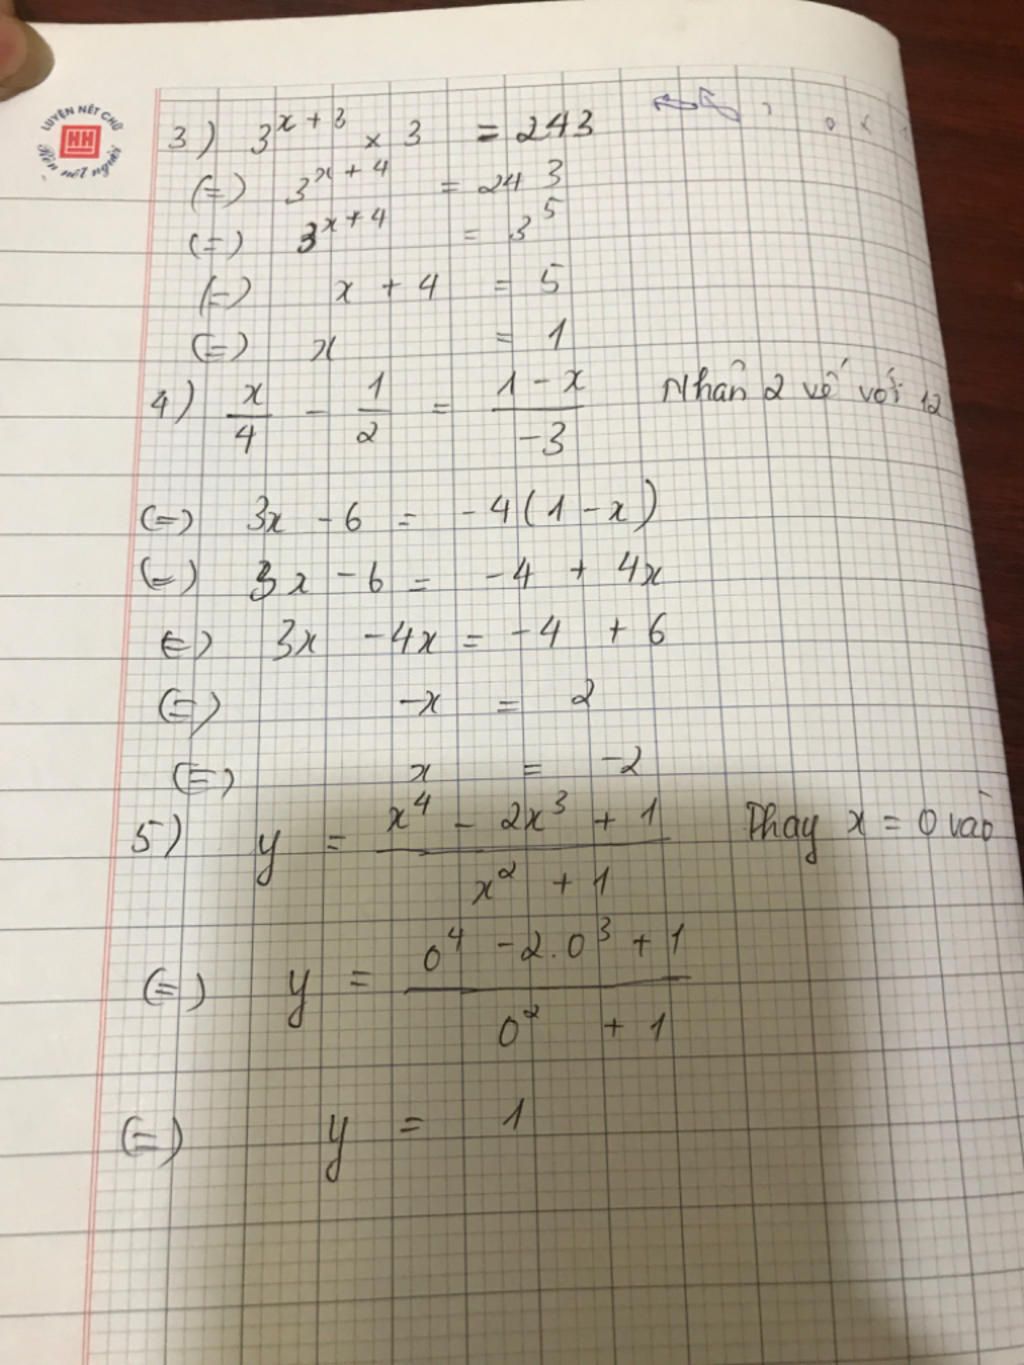 LUYỆN NÉT CHỮ
HH
Rèn nết người
3) 3^{x+3} × 3 = 243
(=) 3^{x+4} = 243
(=) 3^{x+4} = 3^5
(=) x + 4 = 5
(=) x = 1
4) x/4 - 1/2 = (1-x)/-3 Nhân 2 vế với 12
(=) 3x - 6 = -4(1-x)
(=) 3x - 6 = -4 + 4x
(=) 3x - 4x = -4 + 6
(=) -x = 2
(=) x = -2
5) y = (x^4 - 2x^3 + 1)/(x^2 + 1) Thay x = 0 vào
(=) y = (0^4 - 2.0^3 + 1)/(0^2 + 1)
(=) y = 1